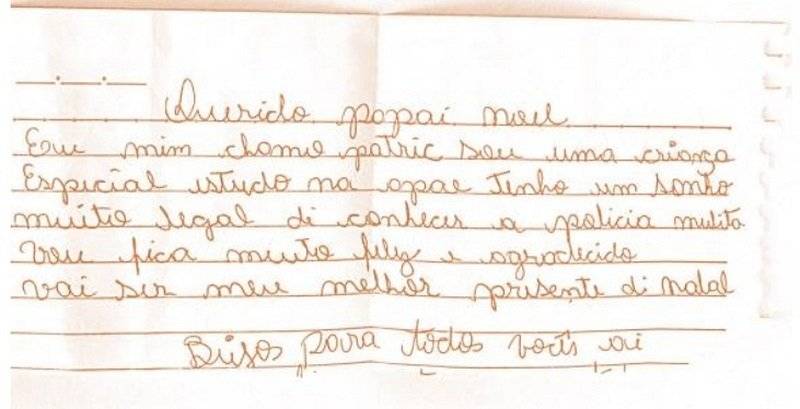 Querido papai noel
Eu mim chamo patric sou uma criança
Especial estudo na apae Tenho um sonho
muito legal di conhecer a policia mulita
vou fica muito feliz e agradecido
vai ser meu melhor presente di natal
Beijos para todos vocês ai